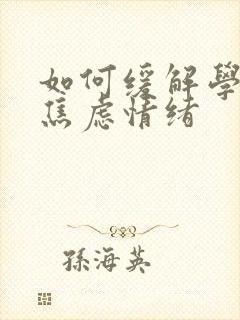 如何缓解學
焦虑情绪
孫海英